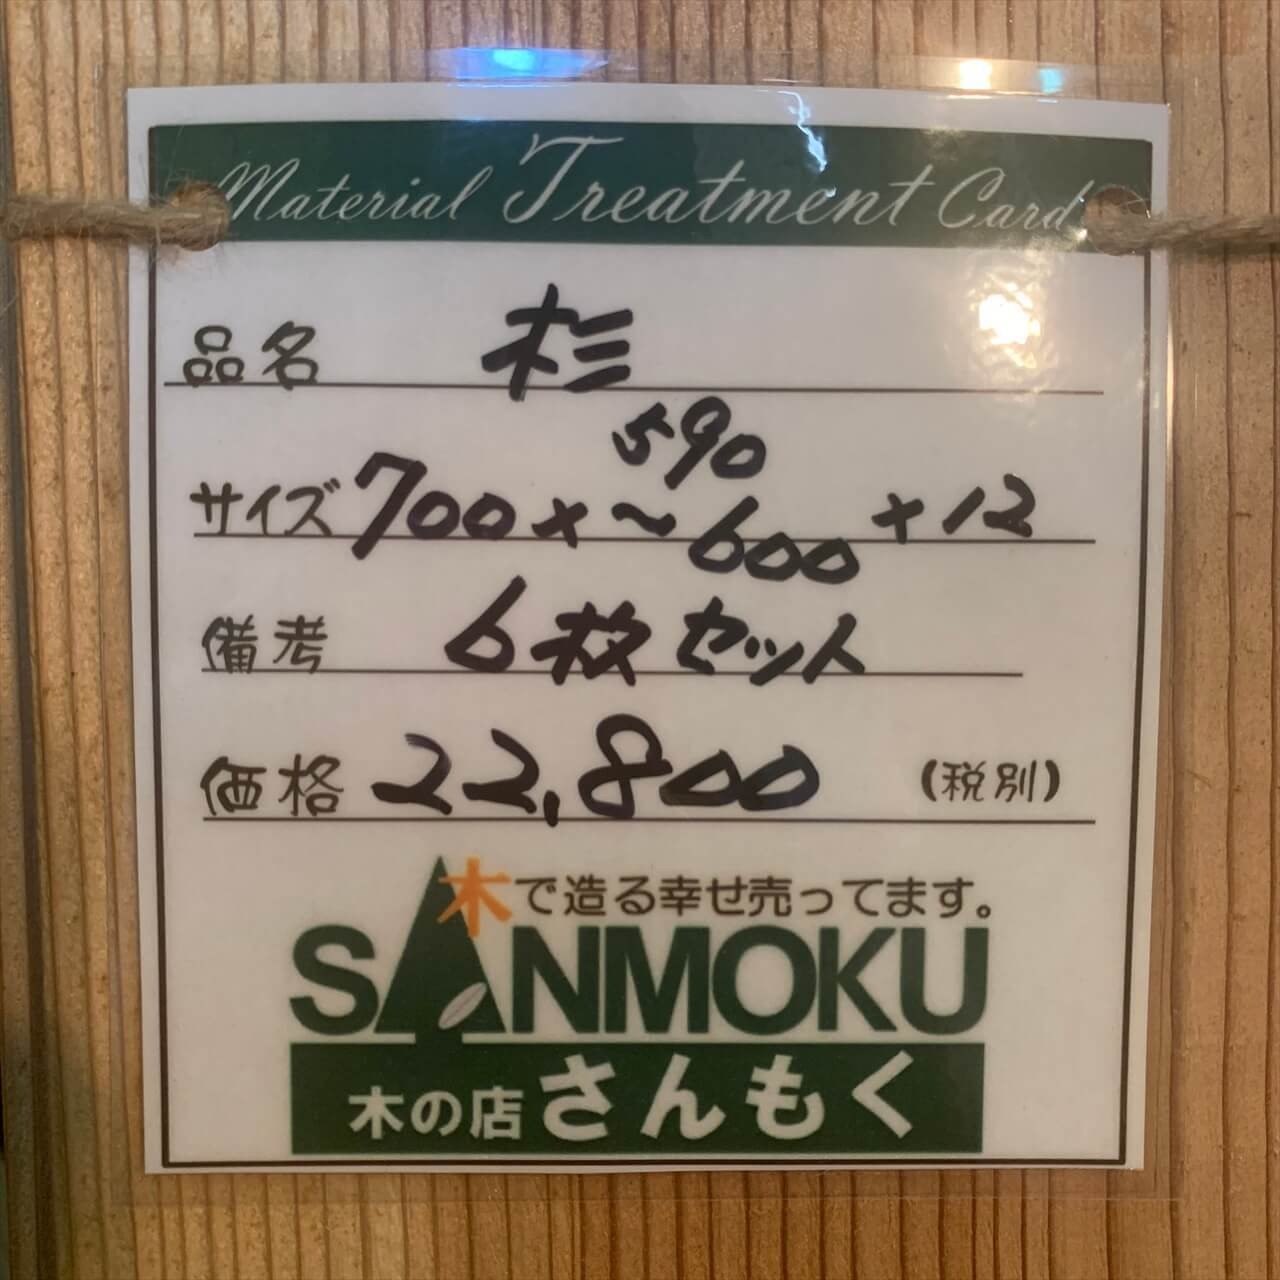 Material Treatment Card
品名 杉
サイズ 700×590～600×12
備考 6枚セット
価格 22,800 (税別)
木で造る幸せ売ってます。
SANMOKU
木の店さんもく